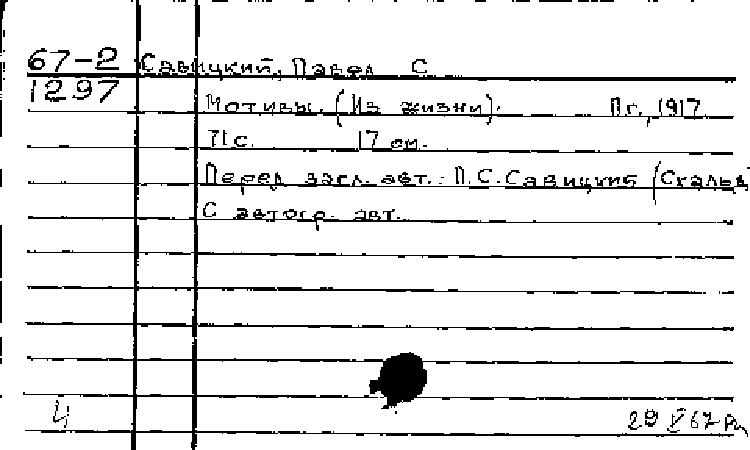 67-2 Савицкий, Павел С.
1297
Мотивы. (Из жизни). Пг., 1917
71 с. 17 см.
Перед загл. авт.: П.С. Савицкий (Скальд
С автогр. авт.
4 29 V 67